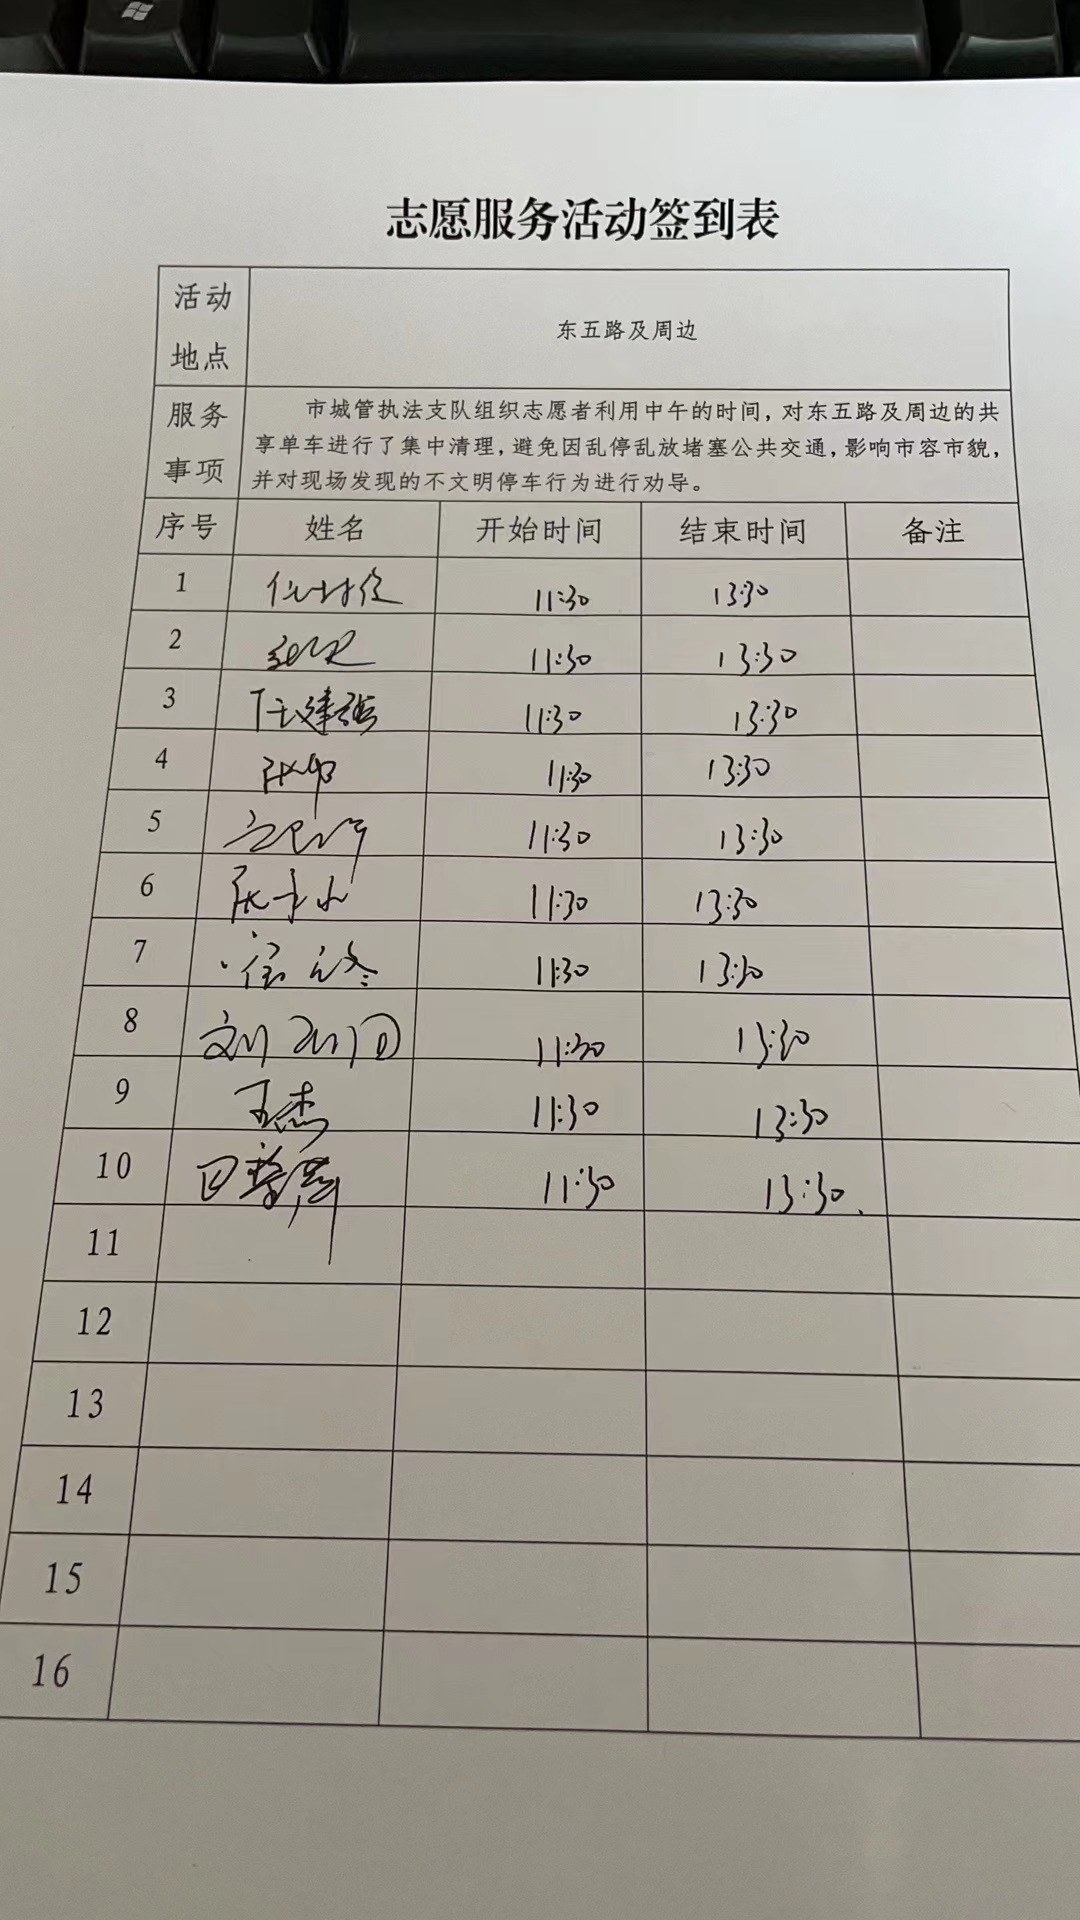 志愿服务活动签到表
活动地点 东五路及周边
服务事项 市城管执法支队组织志愿者利用中午的时间，对东五路及周边的共
享单车进行了集中清理，避免因乱停乱放堵塞公共交通，影响市容市貌，
并对现场发现的不文明停车行为进行劝导。
序号 姓名 开始时间 结束时间 备注
1 11:30 13:30
2 11:30 13:30
3 任建强 11:30 13:30
4 11:30 13:30
5 11:30 13:30
6 11:30 13:30
7 11:30 13:30
8 刘 11:30 13:30
9 王杰 11:30 13:30
10 11:30 13:30
11
12
13
14
15
16